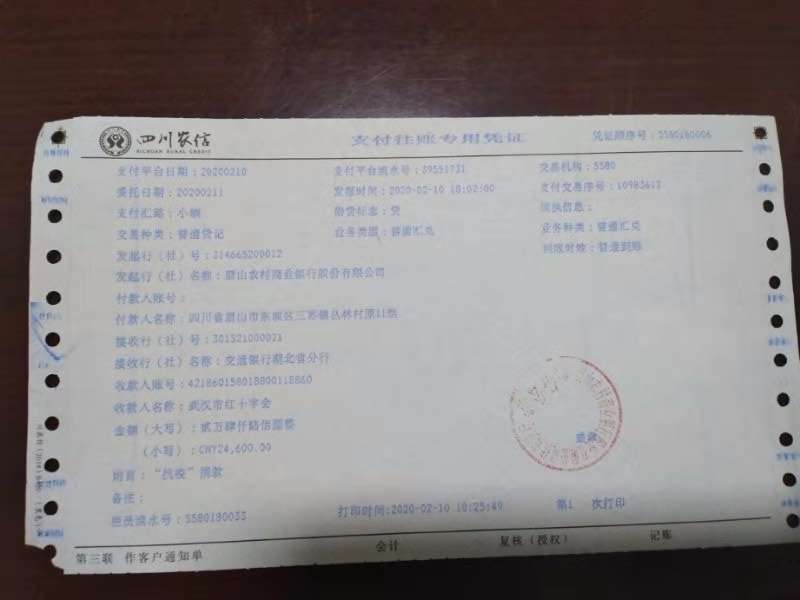 四川农信 支付往账专用凭证 凭证顺序号：2580180006
SICHUAN RURAL CREDIT
支付平台日期：20200210 支付平台流水号：39551731 交易机构：5580
委托日期：20200211 发报时间：2020-02-10 18:02:00 支付交易序号：10983612
支付汇路：小额 借贷标志：贷
交易种类：普通贷记 业务类型：普通汇兑 业务种类：普通汇兑
发起行（社）号：314665200012 到账时效：普通到账
发起行（社）名称：眉山农村商业银行股份有限公司
付款人账号：
付款人名称：四川省眉山市东坡区三苏镇丛林村原11组
接收行（社）号：301521000021
接收行（社）名称：交通银行湖北省分行
收款人账号：421860158018800118860
收款人名称：武汉市红十字会
金额（大写）：贰万肆仟陆佰圆整
（小写）：CNY24,600.00
附言："抗疫"捐款
备注：
柜员流水号：5580180033 打印时间：2020-02-10 18:25:49 第1 次打印
第三联 作客户通知单 会计 复核（授权） 记账